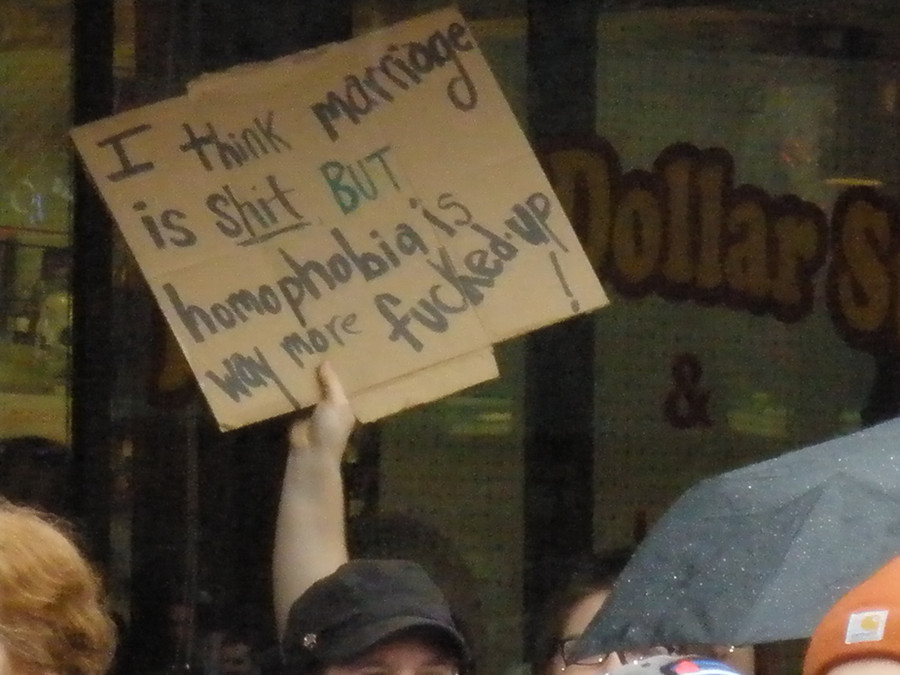 I think marriage
is shit BUT
homophobia is
way more fucked-up
!
Dollar S
&